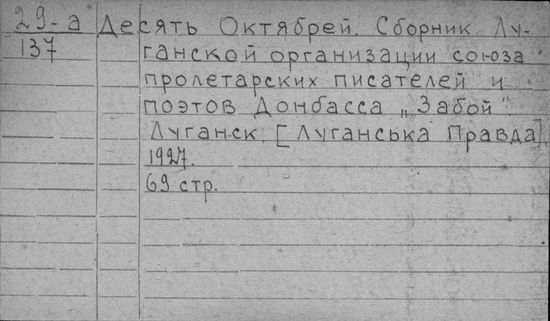 29-а Десять Октябрей. Сборник Лу-
137 ганской организации союза
пролетарских писателей и
поэтов Донбасса „Забой".
Луганск. [Луганська Правда].
1927.
69 стр.